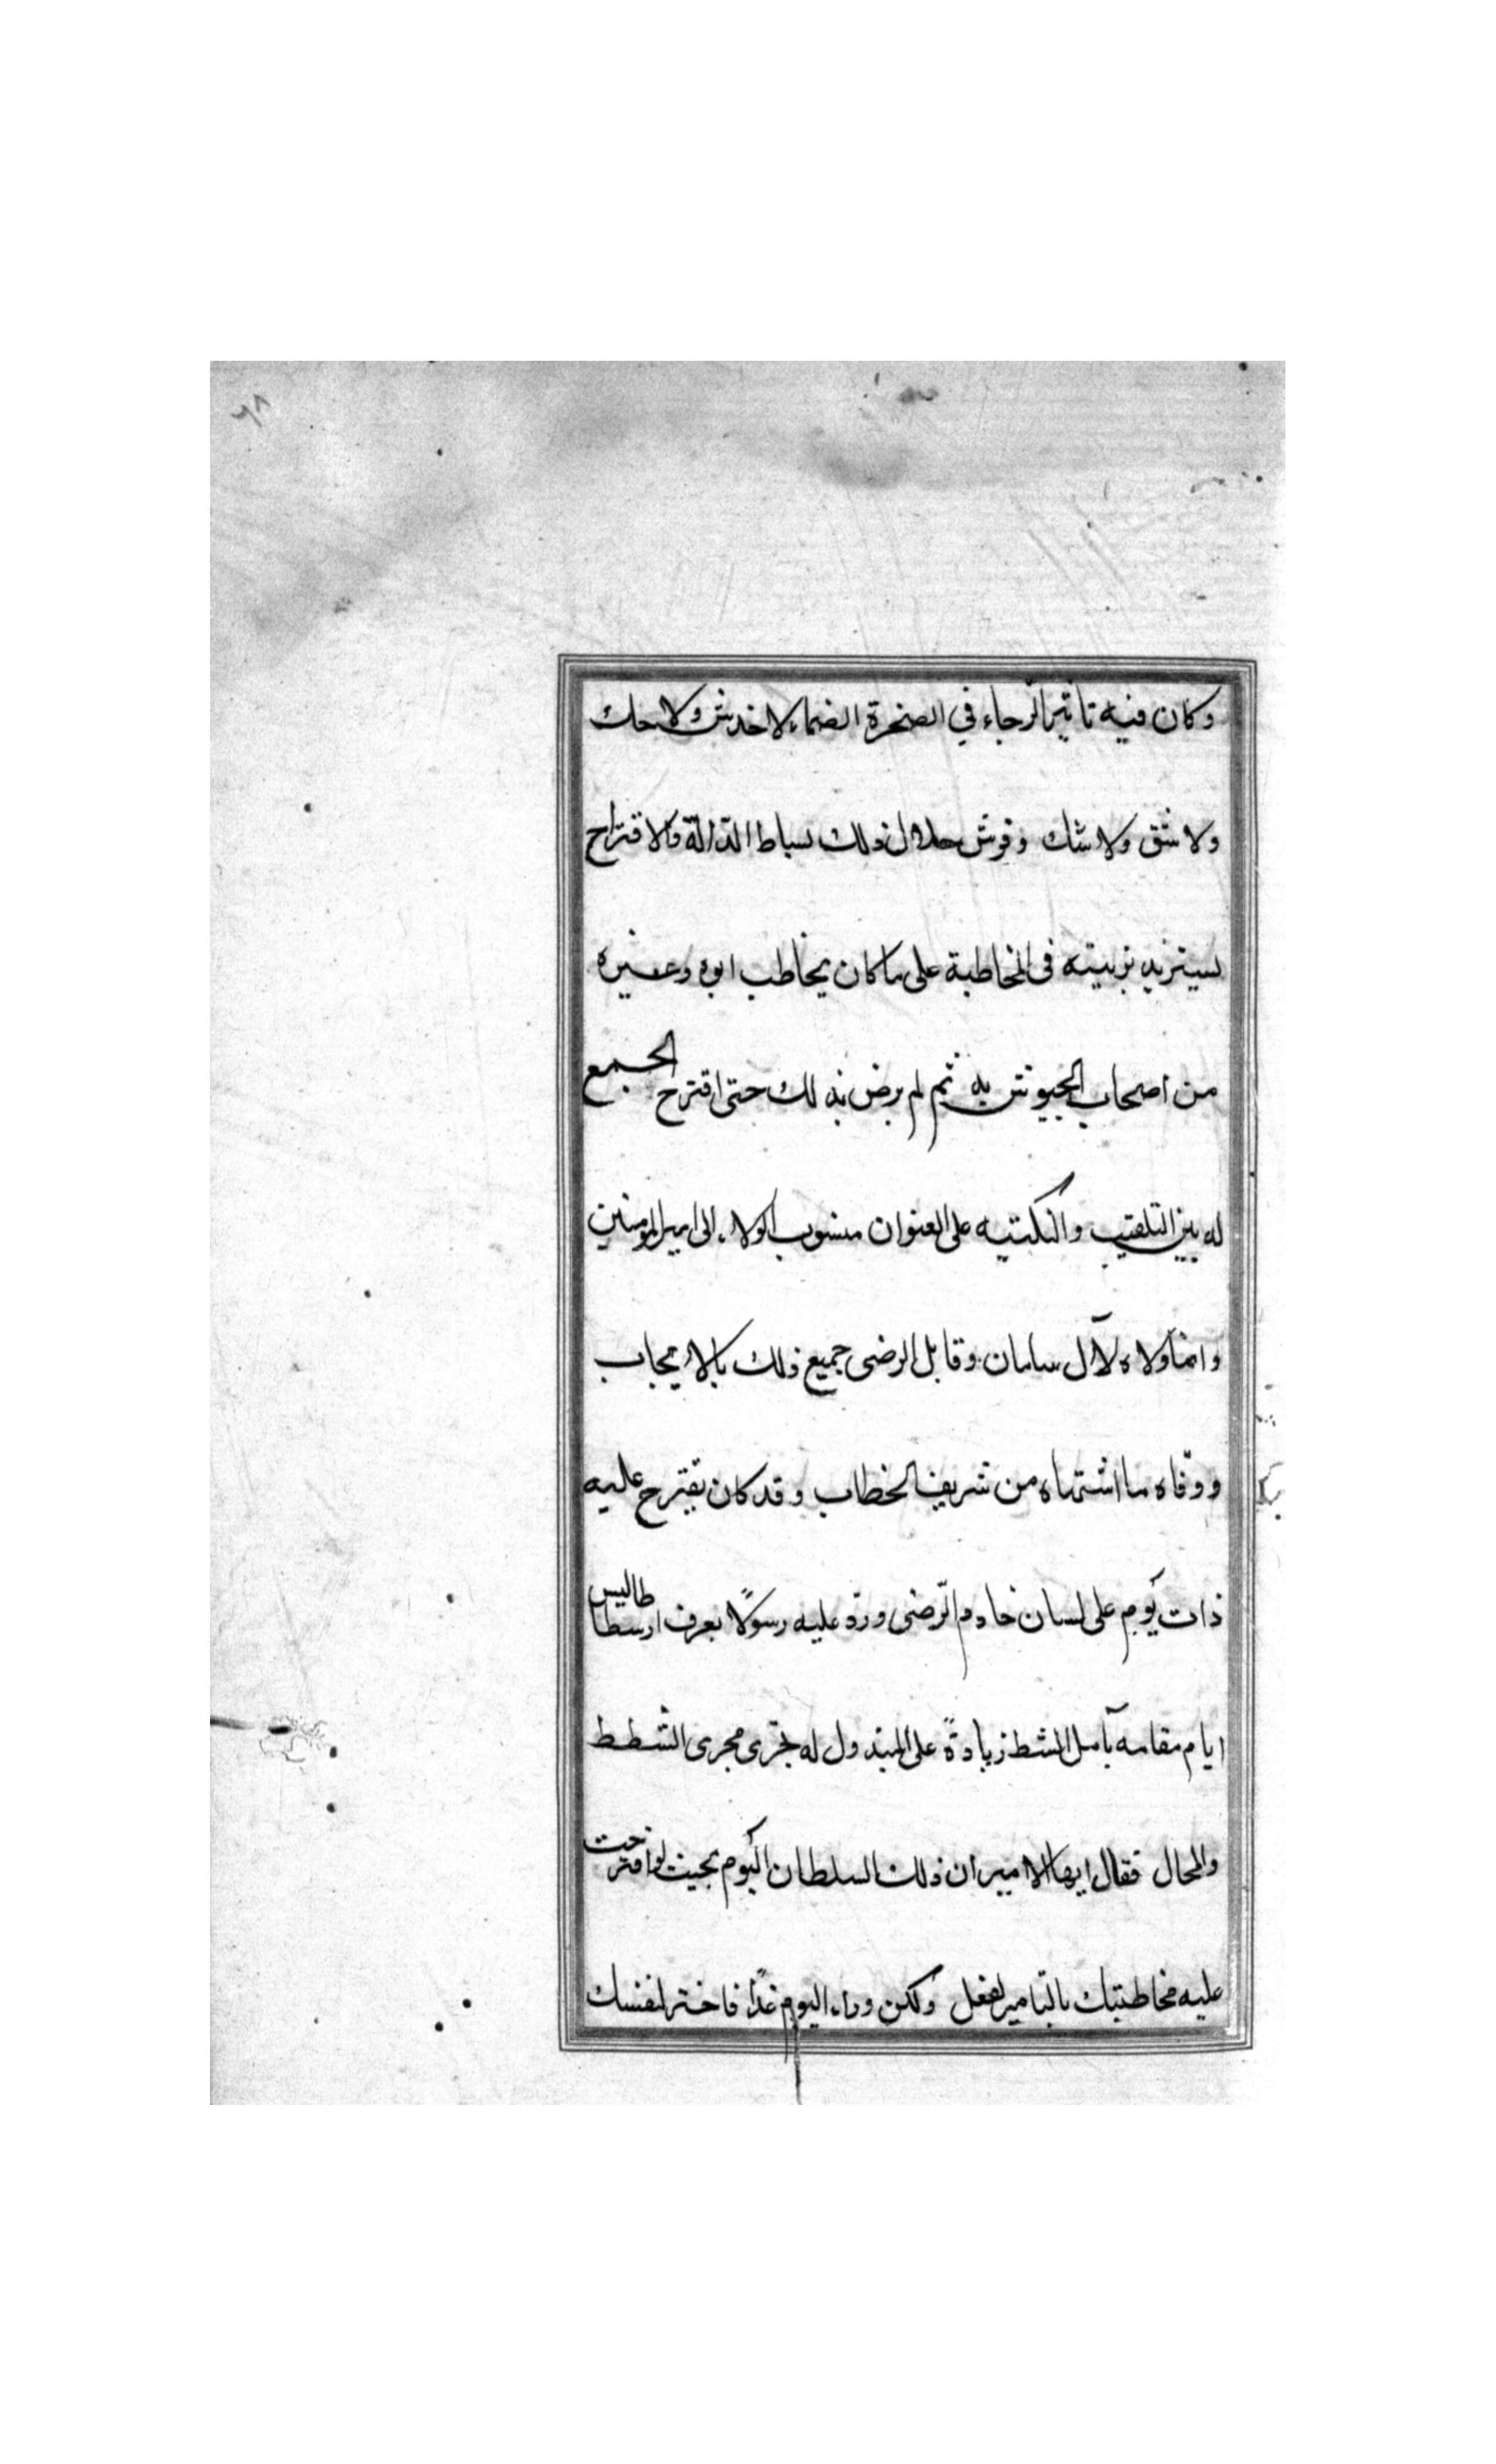 ٦٨
وكان فيه تأثير الرجاء في الصخرة الصماء لا خدش ولا حك
ولا شق ولا شك وفرش خلال ذلك بساط الدالة والاقتراح
يستزيد بزينته في المخاطبة على ما كان يخاطب ابوه وغيره
من اصحاب الجيوش به ثم لم يرض بذلك حتى اقترح الجمع
له بين التلقيب والتكنيه على العنوان منسوب الولاء الى امير المومنين
وانما ولاه لآل سامان وقابل الرضى جميع ذلك بالايجاب
ووفاه ما اشتهاه من شريف الخطاب وقد كان يقترح عليه
ذات يوم على لسان خادم الرضى ورد عليه رسولًا يعرف ارسطاطاليس
ايام مقامه بآمل الشط زيادةً على المبذول له تجرى مجرى الشطط
والمحال فقال ايها الامير ان ذلك السلطان اليوم بحيث لو اقترحت
عليه مخاطبتك بالتامير لفعل ولكن وراء اليوم غدًا فاختر لنفسك